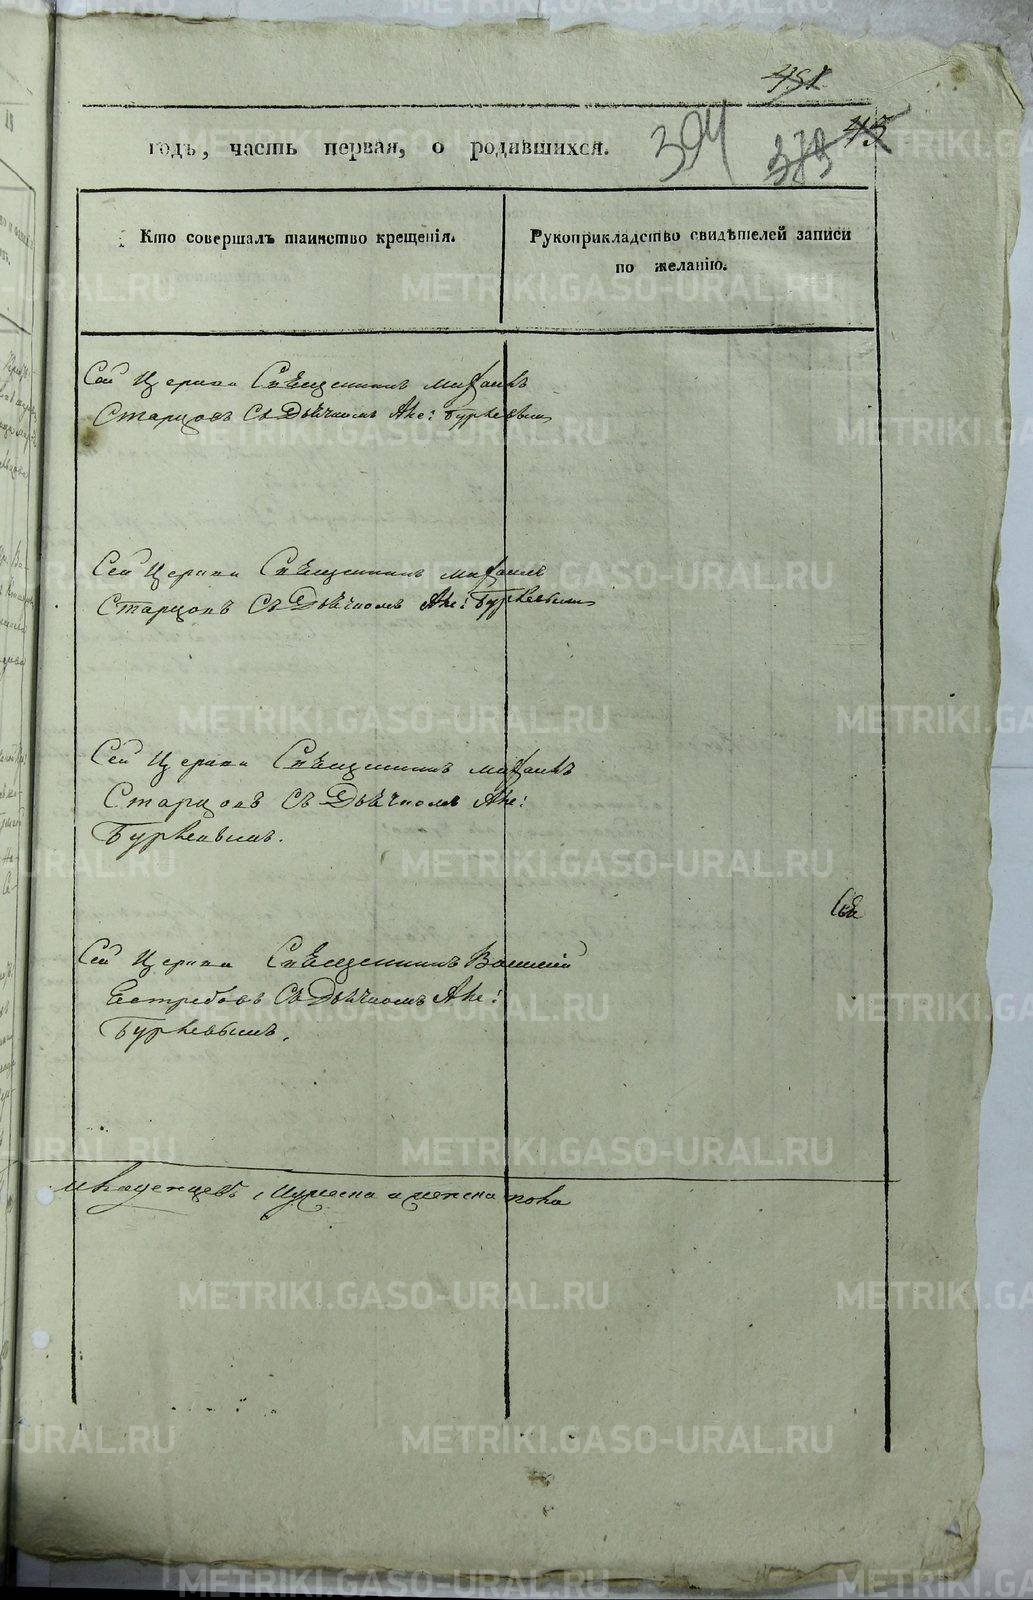 451
45
годъ, часть первая, о родившихся.
394
373
Кто совершалъ таинство крещенія.
Рукоприкладство свидѣтелей записи
по желанію.
Сей Церкви Священникъ Михаилъ
Старцовъ Съ Дьячкомъ Але: Буркевымъ
Сей Церкви Священникъ Михаилъ
Старцовъ Съ Дьячкомъ Але: Буркевымъ
Сей Церкви Священникъ Михаилъ
Старцовъ Съ Дьячкомъ Але:
Буркевымъ.
Сей Церкви Священникъ Василій
Естребовъ Съ Дьячкомъ Але:
Буркевымъ.
младенцевъ, мужеска и женска пола
METRIKI.GASO-URAL.RU